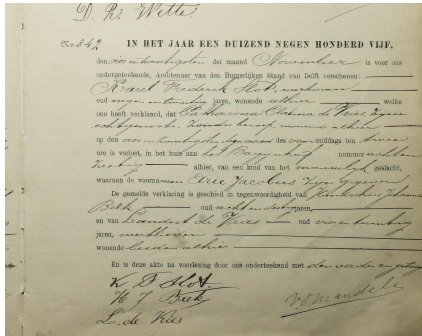 D. R. Witte
No. 842 IN HET JAAR EEN DUIZEND NEGEN HONDERD VIJF,
den vier en twintigsten der maand November is voor ons
ondergeteekende, Ambtenaar van den Burgerlijken Stand van Delft verschenen:
Karel Frederik Slot, werkman
oud negen en twintig jaren, wonende alhier welke
ons heeft verklaard, dat Catharina de Vries, zijne
echtgenoote, zonder beroep, wonende alhier
op den dezer des voor-middags ten twee
ure is verlost, in het huis aan nommer
alhier, van een kind van het mannelijk geslacht,
waaraan de voornamen Jacobus zijn gegeven
De gemelde verklaring is geschied in tegenwoordigheid van Johannes
Beek oud acht en dertig jaren,
en van Leendert de Vries oud vier en twintig
jaren, werklieden
wonende beiden alhier
En is deze akte na voorlezing door ons onderteekend met den vader en getuigen
K F Slot
H J Beek
L. de Vries